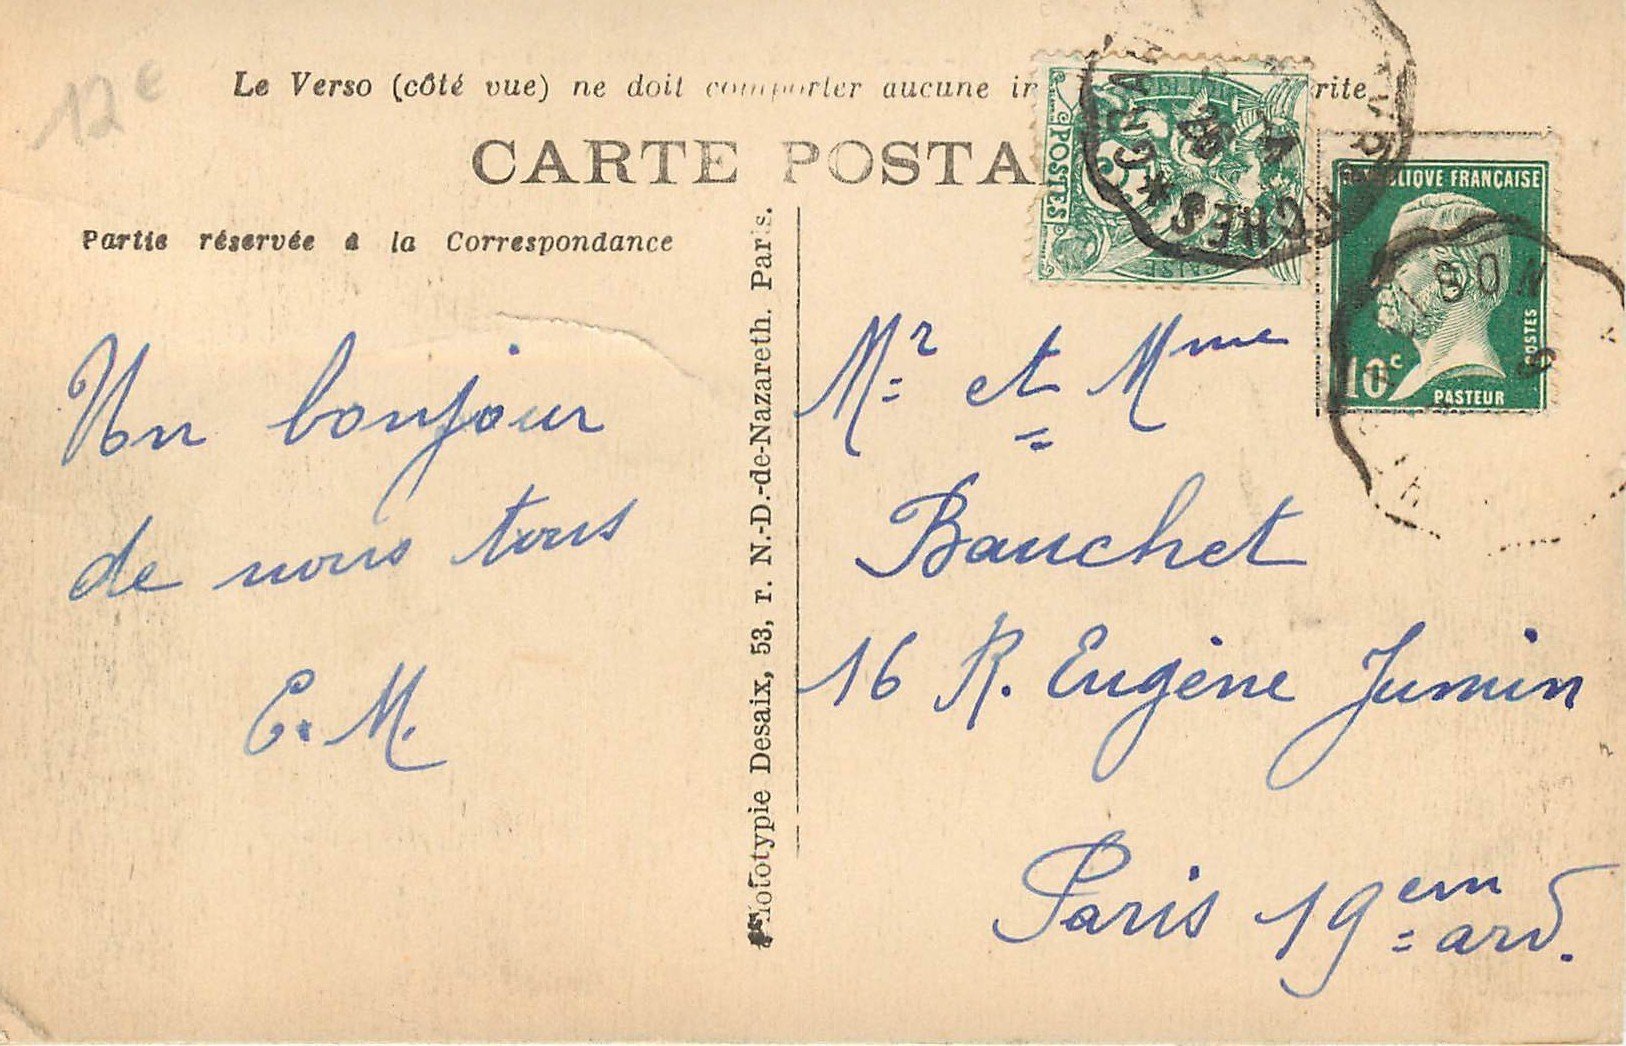 12 e
Le Verso (côté vue) ne doit comporter aucune in rite
CARTE POSTA
Partie réservée à la Correspondance
Un bonjour
de nous tous
C. M.
Phototypie Desaix, 53, r. N.-D.-de-Nazareth. Paris.
POSTES
5
RÉPUBLIQUE FRANÇAISE
10c
POSTES
PASTEUR
Mr et Mme
Bauchet
16 R. Eugène Jumin
Paris 19em ard.